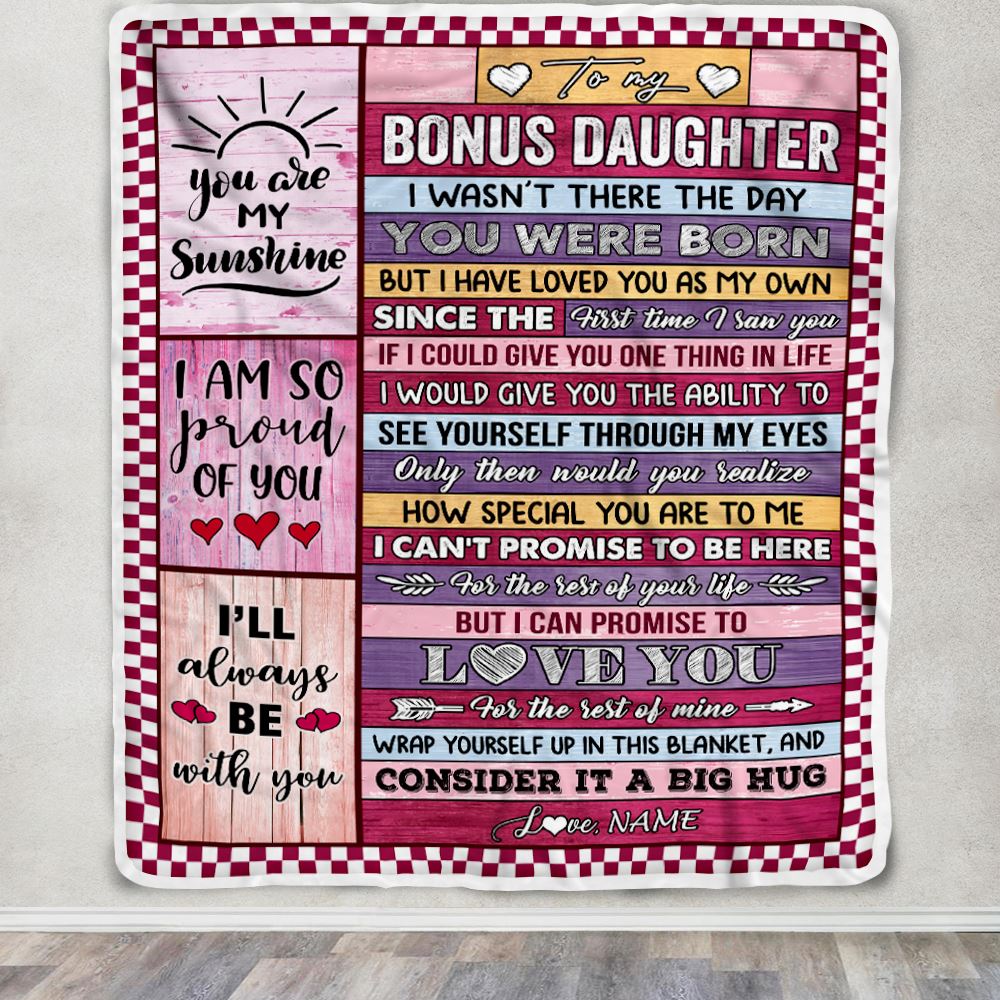 you are
MY
Sunshine
I AM SO
proud
OF YOU
I'LL
always
BE
with you
To my
BONUS DAUGHTER
I WASN'T THERE THE DAY
YOU WERE BORN
BUT I HAVE LOVED YOU AS MY OWN
SINCE THE First time I saw you
IF I COULD GIVE YOU ONE THING IN LIFE
I WOULD GIVE YOU THE ABILITY TO
SEE YOURSELF THROUGH MY EYES
Only then would you realize
HOW SPECIAL YOU ARE TO ME
I CAN'T PROMISE TO BE HERE
For the rest of your life
BUT I CAN PROMISE TO
LOVE YOU
For the rest of mine
WRAP YOURSELF UP IN THIS BLANKET, AND
CONSIDER IT A BIG HUG
Love, NAME